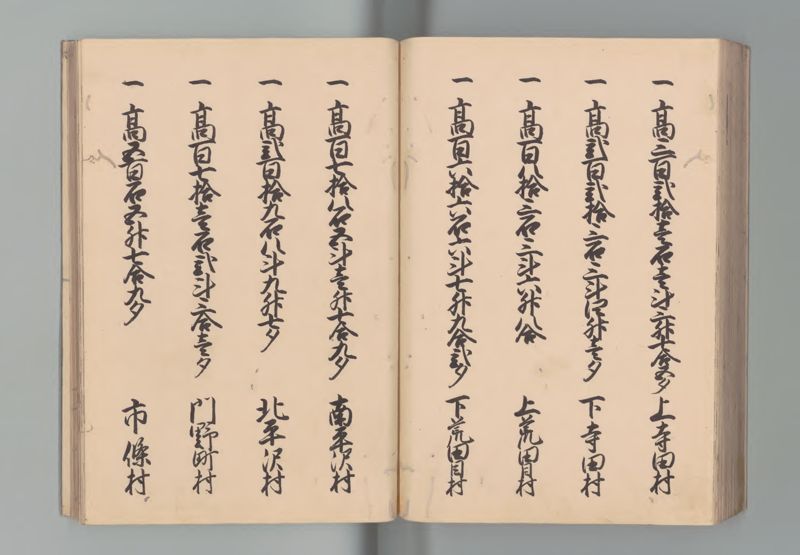 一高三百弐拾壱石壱斗六升七合五夕 上寺田村
一高弐百弐拾三石三斗四升壱夕 下寺田村
一高百八拾三石三斗六升八合 上荒田目村
一高百六拾六石六斗七升九合弐夕 下荒田目村
一高百七拾八石五斗壱升七合九夕 南平沢村
一高弐百拾九石八斗九升七夕 北平沢村
一高百七拾壱石弐斗六合壱夕 門野町村
一高五百石五升七合九夕 市條村